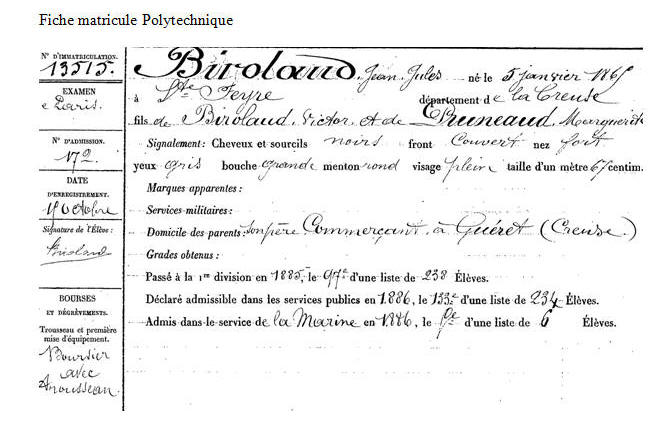 Fiche matricule Polytechnique
N° D'IMMATRICULATION.
13515.
EXAMEN
de Paris.
N° D'ADMISSION.
172
DATE
D'ENREGISTREMENT.
Octobre
Signature de l'Élève :
Birolaud
BOURSES
ET DÉGRÈVEMENTS.
Trousseau et première
mise d'équipement.
Boursier
avec
Trousseau.
Birolaud, Jean Jules né le 5 janvier 1865
à Ste Feyre département de la Creuse
fils de Birolaud, Victor et de Pruneaud, Marguerite
Signalement : Cheveux et sourcils noirs front Couvert nez fort
yeux gris bouche grande menton rond visage plein taille d'un mètre 65 centim.
Marques apparentes :
Services militaires :
Domicile des parents : son père Commerçant, à Guéret (Creuse)
Grades obtenus :
Passé à la 1re division en 1885, le 97e d'une liste de 238 Élèves.
Déclaré admissible dans les services publics en 1886, le 133e d'une liste de 234 Élèves.
Admis dans le service de la Marine en 1886, le d'une liste de 6 Élèves.